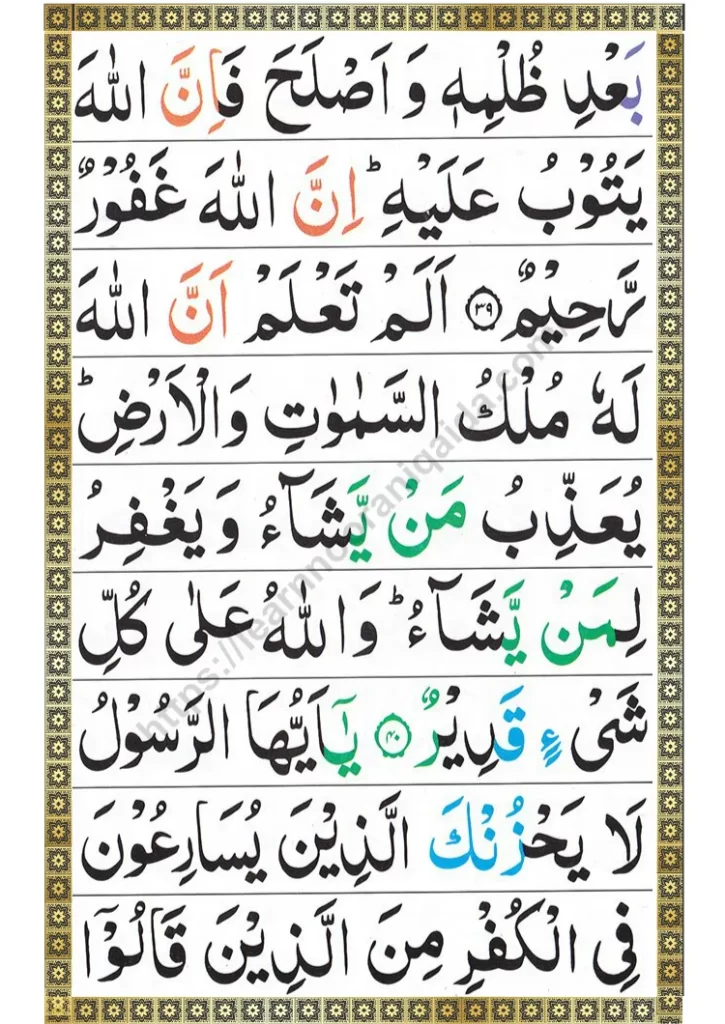 بَعْدِ ظُلْمِهٖ وَاَصْلَحَ فَاِنَّ اللّٰهَ
يَتُوْبُ عَلَيْهِ ؕ اِنَّ اللّٰهَ غَفُوْرٌ
رَّحِيْمٌ ۝۳۹ اَلَمْ تَعْلَمْ اَنَّ اللّٰهَ
لَهٗ مُلْكُ السَّمٰوٰتِ وَالْاَرْضِ ؕ
يُعَذِّبُ مَنْ يَّشَآءُ وَيَغْفِرُ
لِمَنْ يَّشَآءُ ؕ وَاللّٰهُ عَلٰى كُلِّ
شَىْءٍ قَدِيْرٌ ۝۴۰ يٰٓاَيُّهَا الرَّسُوْلُ
لَا يَحْزُنْكَ الَّذِيْنَ يُسَارِعُوْنَ
فِى الْكُفْرِ مِنَ الَّذِيْنَ قَالُوْۤا
https://learnnooraniqaida.com